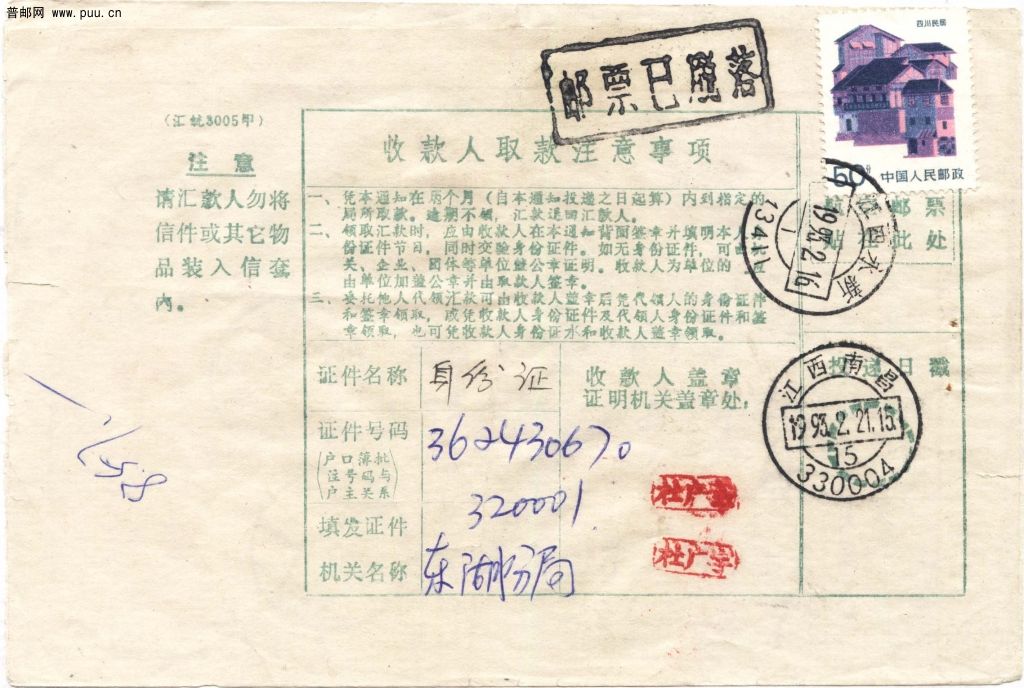 普邮网 www.puu.cn
邮票已脱落
四川民居
50分 中国人民邮政
(汇统3005甲)
注意
请汇款人勿将
信件或其它物
品装入信套
内。
收款人取款注意事项
一、凭本通知在两个月(自本通知投递之日起算)内到指定的
局所取款。逾期不领,汇款退回汇款人。
二、领取汇款时,应由收款人在本通知背面签章并填明本人
份证件节目,同时交验身份证件。如无身份证件,可由
关、企业、团体等单位盖公章证明。收款人为单位的
由单位加盖公章并由取款人签章。
三、委托他人代领汇款可由收款人盖章后凭代领人的身份证件
和签章领取,或凭收款人身份证件及代领人身份证件和签
章领取,也可凭收款人身份证水和收款人盖章领取。
邮票
贴在此处
江西永新
1993.2.16
1
1344
证件名称
身份证
收款人盖章
证明机关盖章处:
投递日戳
江西南昌
1993.2.21.15
15
330004
证件号码
36243067.0
(户口簿批
注号码与
户主关系)
320001
填发证件
机关名称
东湖邮分局
杜广宇
杜广宇